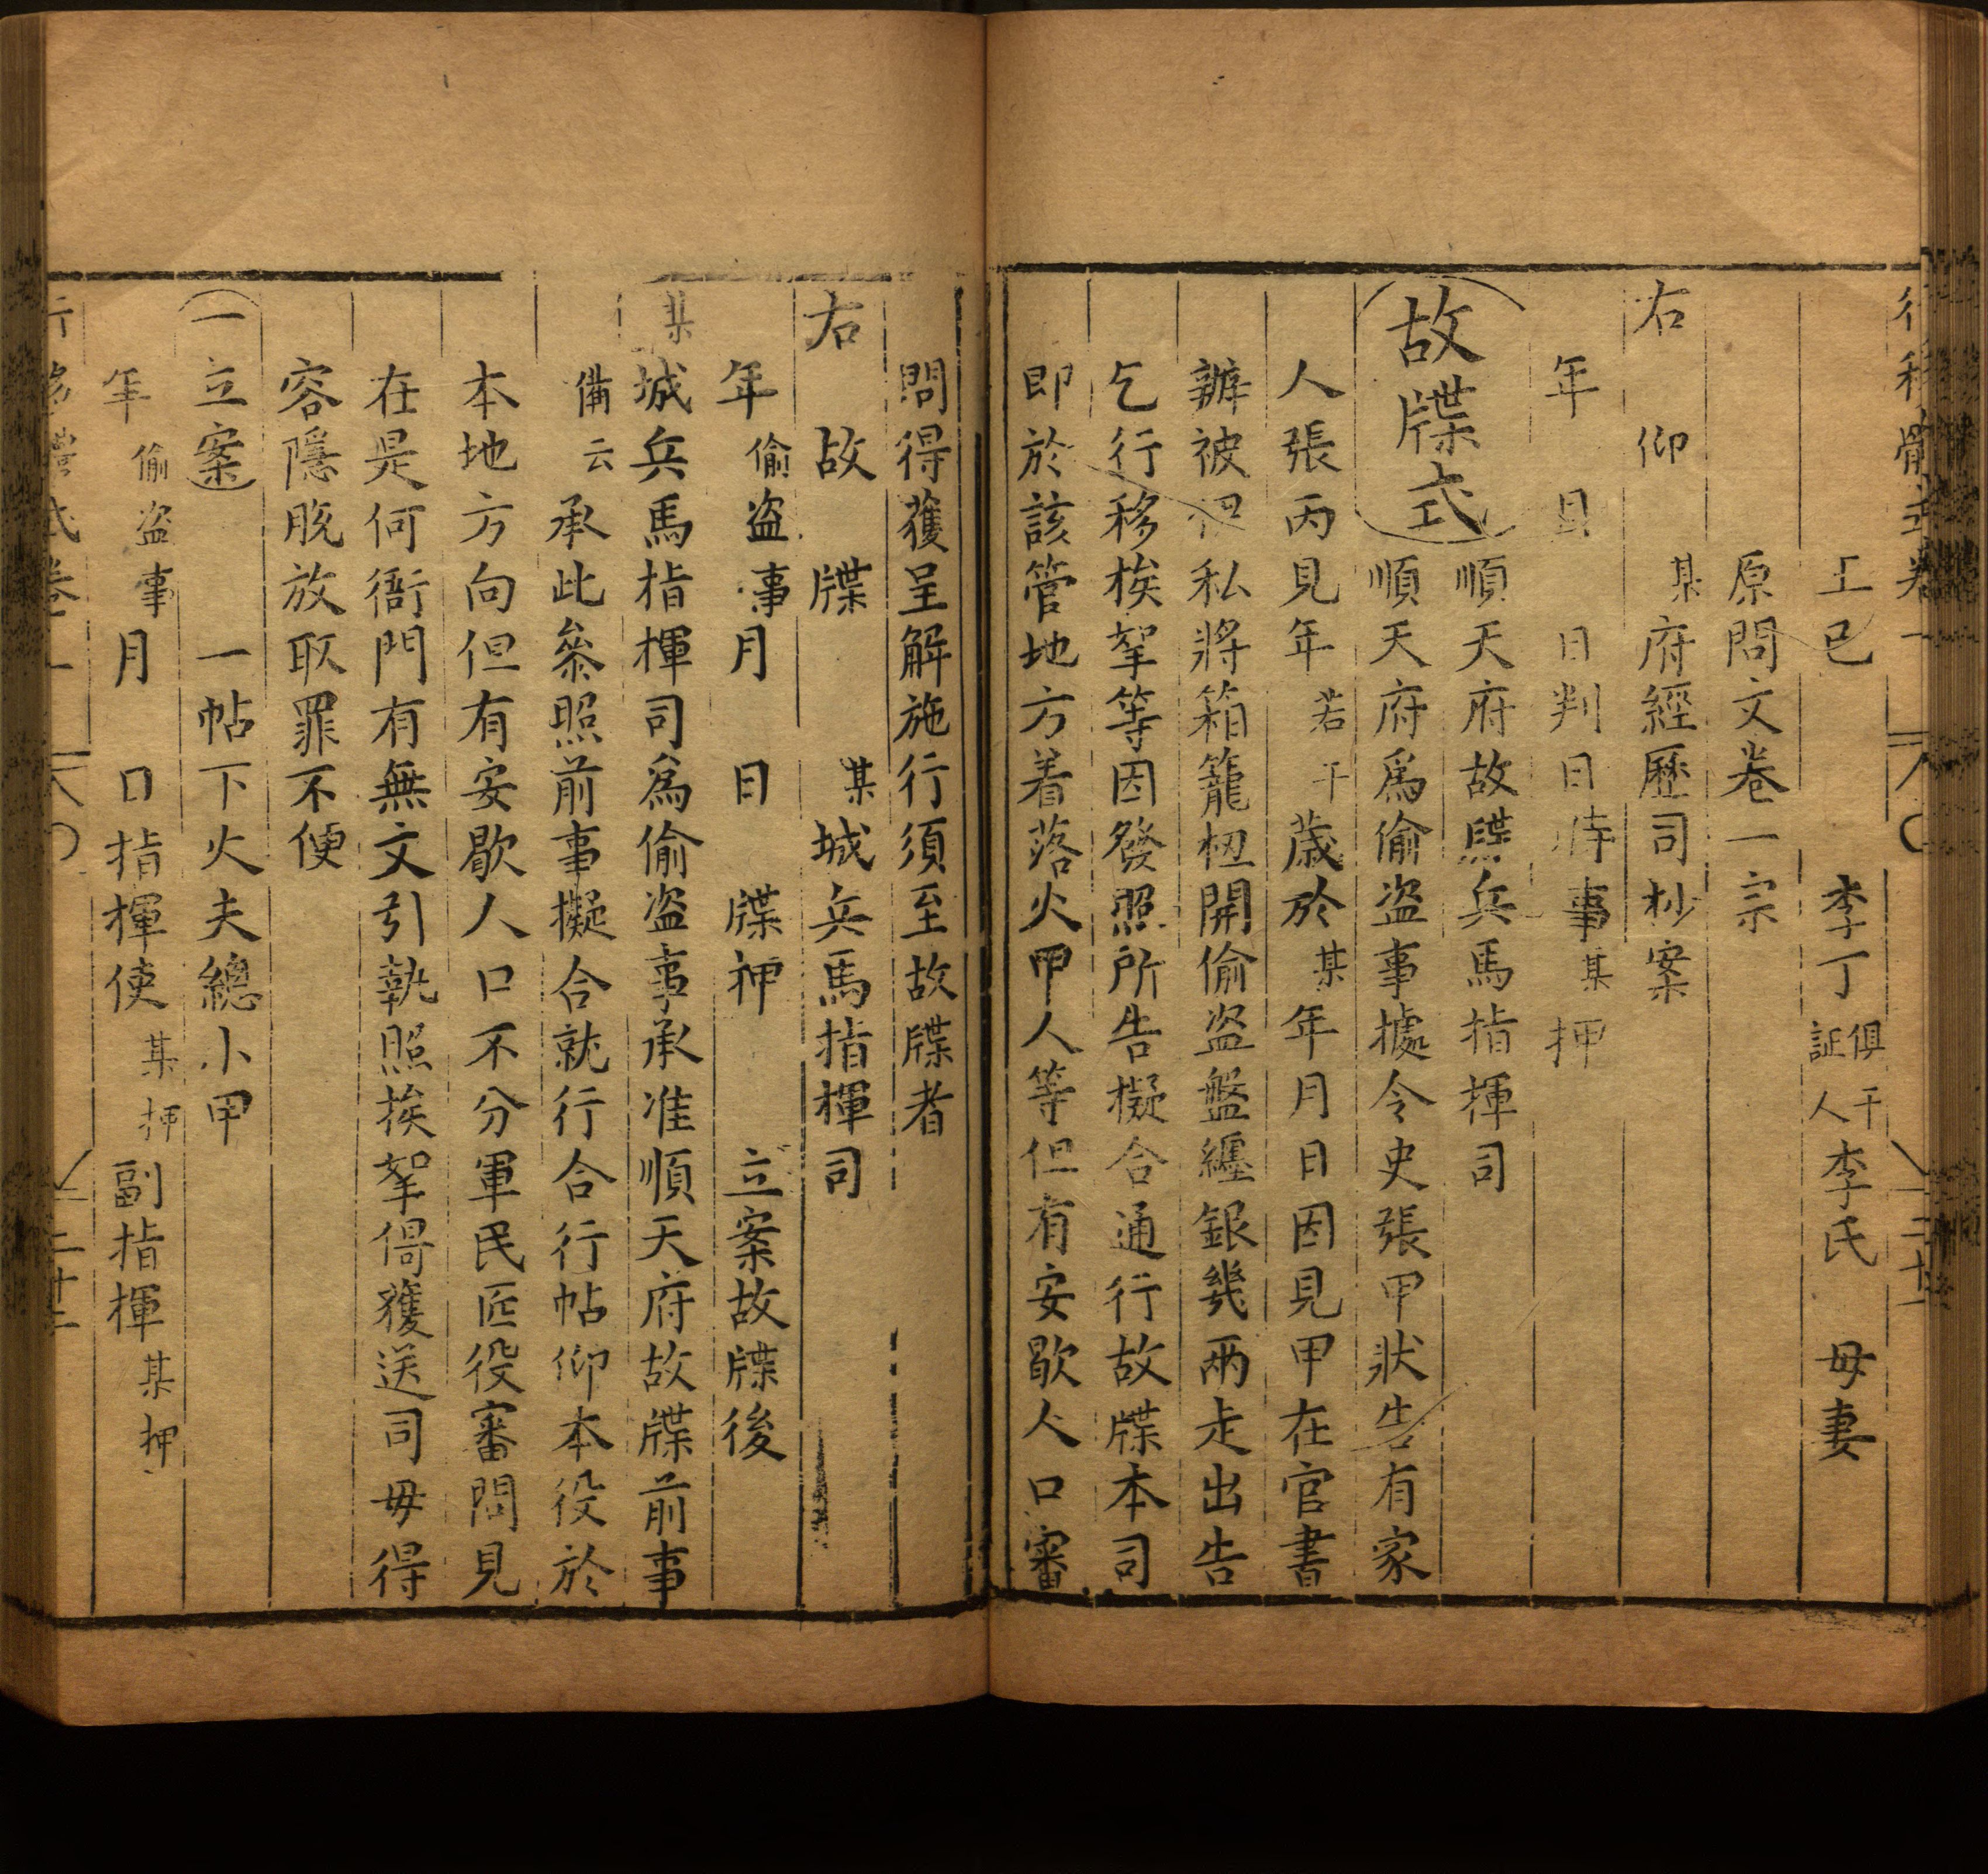 行移體式卷一
工已 李丁 俱干証人 李氏 毋妻
原問文卷一宗
右仰 某府經歷司抄案
年 月 日判日待事某押
故牒式 順天府故牒兵馬指揮司
順天府爲偷盗事據令史張甲狀告有家
人張丙見年若干歲於某年月日因見甲在官書
辦被伊私將箱籠扭開偷盗盤纏銀幾兩走出告
乞行移挨拏等因發照所告擬合通行故牒本司
即於該管地方着落火甲人等但有安歇人口審
問得獲呈解施行須至故牒者
右故牒 某城兵馬指揮司
年偷盗事月 日 牒押 立案故牒後
某城兵馬指揮司爲偷盗事承准順天府故牒前事
備云承此叅照前事擬合就行合行帖仰本役於
本地方向但有安歇人口不分軍民匠役審問見
在是何衙門有無文引執照挨拏倘獲送司毋得
容隱脫放取罪不便
一立案 一帖下火夫總小甲
年偷盗事月 日指揮使某押副指揮某押
行移體式卷一 二十二